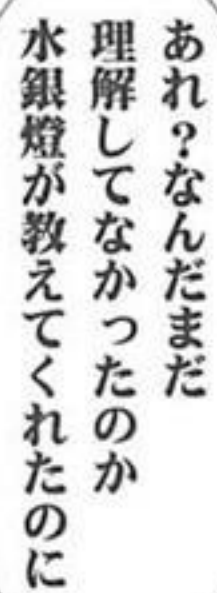 あれ？なんだまだ
理解してなかったのか
水銀燈が教えてくれたのに